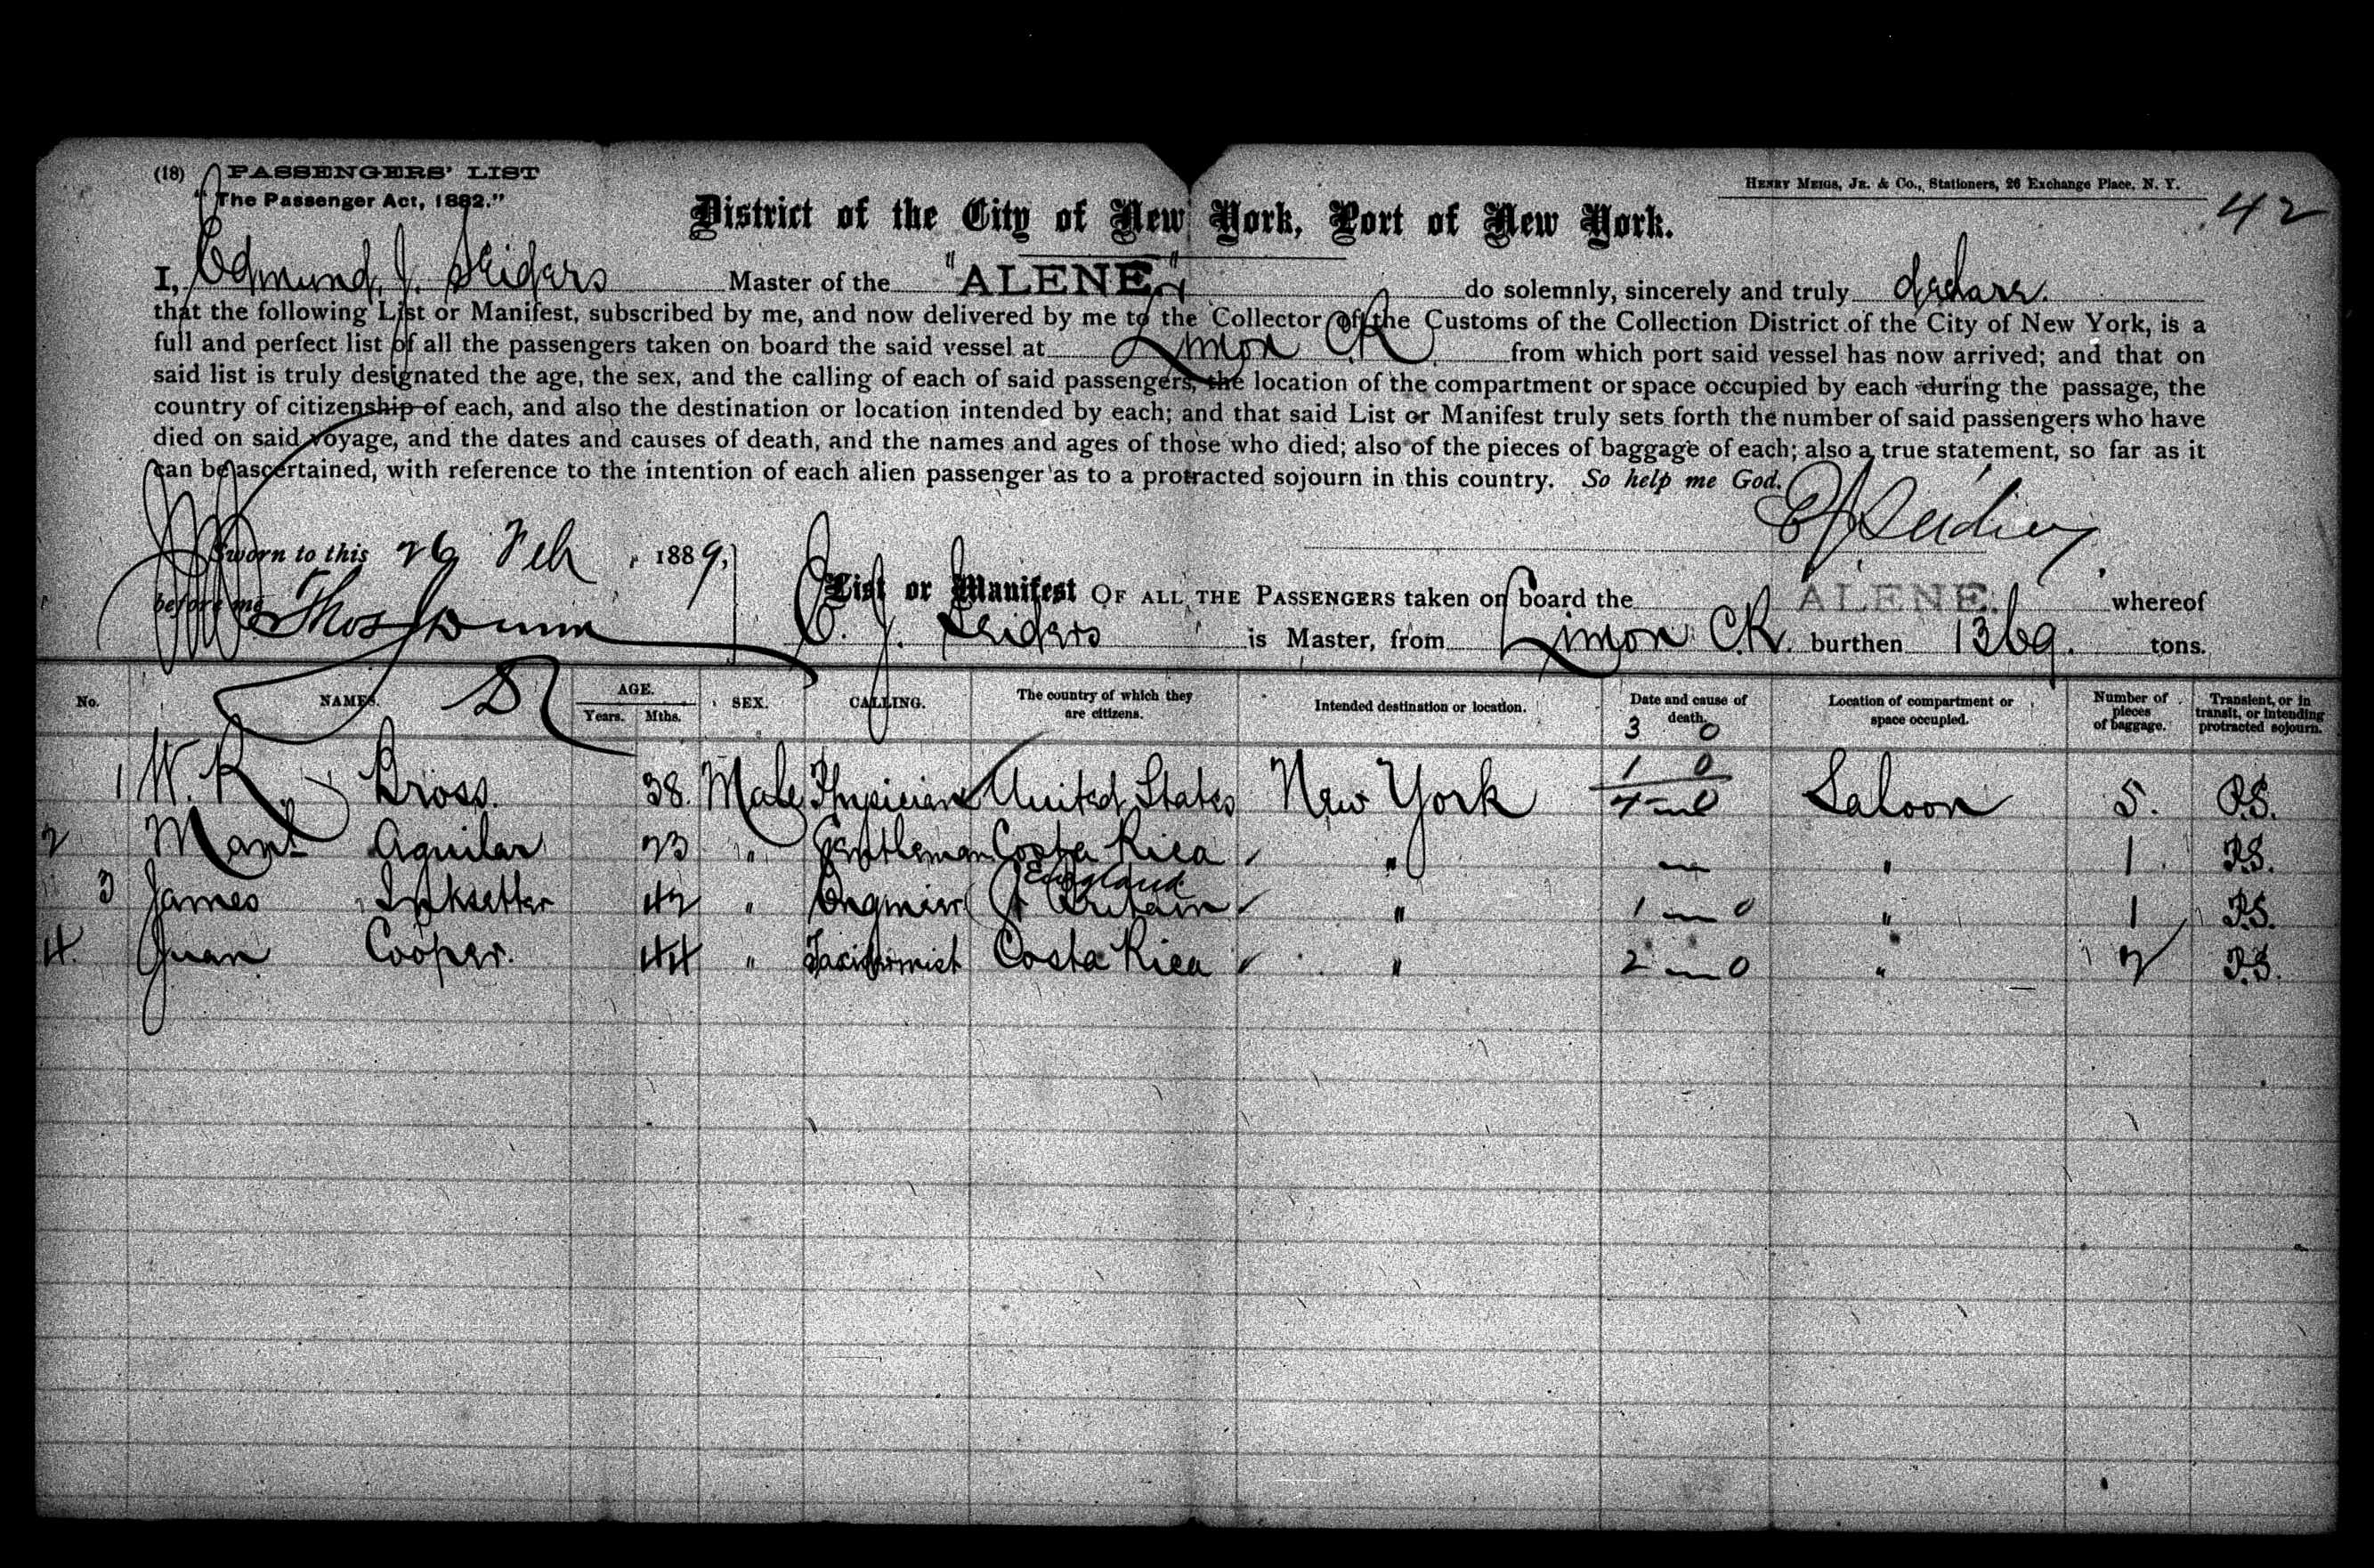 (18) PASSENGERS' LIST
"The Passenger Act, 1882."
HENRY MEIGS, JR. & Co., Stationers, 26 Exchange Place, N. Y.
42
District of the City of New York, Port of New York.
I, Edmund J. Seiders Master of the "ALENE" do solemnly, sincerely and truly declare.
that the following List or Manifest, subscribed by me, and now delivered by me to the Collector of the Customs of the Collection District of the City of New York, is a
full and perfect list of all the passengers taken on board the said vessel at Limon C.R. from which port said vessel has now arrived; and that on
said list is truly designated the age, the sex, and the calling of each of said passengers, the location of the compartment or space occupied by each during the passage, the
country of citizenship of each, and also the destination or location intended by each; and that said List or Manifest truly sets forth the number of said passengers who have
died on said voyage, and the dates and causes of death, and the names and ages of those who died; also of the pieces of baggage of each; also a true statement, so far as it
can be ascertained, with reference to the intention of each alien passenger as to a protracted sojourn in this country. So help me God.
E J Seiders
Sworn to this 26 Feb , 1889,
before me Thos Dunn
List or Manifest OF ALL THE PASSENGERS taken on board the ALENE. whereof
E. J. Seiders is Master, from Limon C.R. burthen 1369. tons.
No. NAMES. AGE. Years. Mths. SEX. CALLING. The country of which they are citizens. Intended destination or location. Date and cause of death. Location of compartment or space occupied. Number of pieces of baggage. Transient, or in transit, or intending protracted sojourn.
3 0
1 0
1 W. R. Bross. 38. Male Physician United States New York 4 — 0 Saloon 5. P.S.
2 Manl. Aguilar 23 " Gentleman Costa Rica " — " 1. P.S.
England
3 James Inksetter 42 " Engineer Gt Britain " 1 — 0 " 1 P.S.
4. Juan Cooper. 44 " Taxidermist Costa Rica " 2 — 0 " 2 P.S.